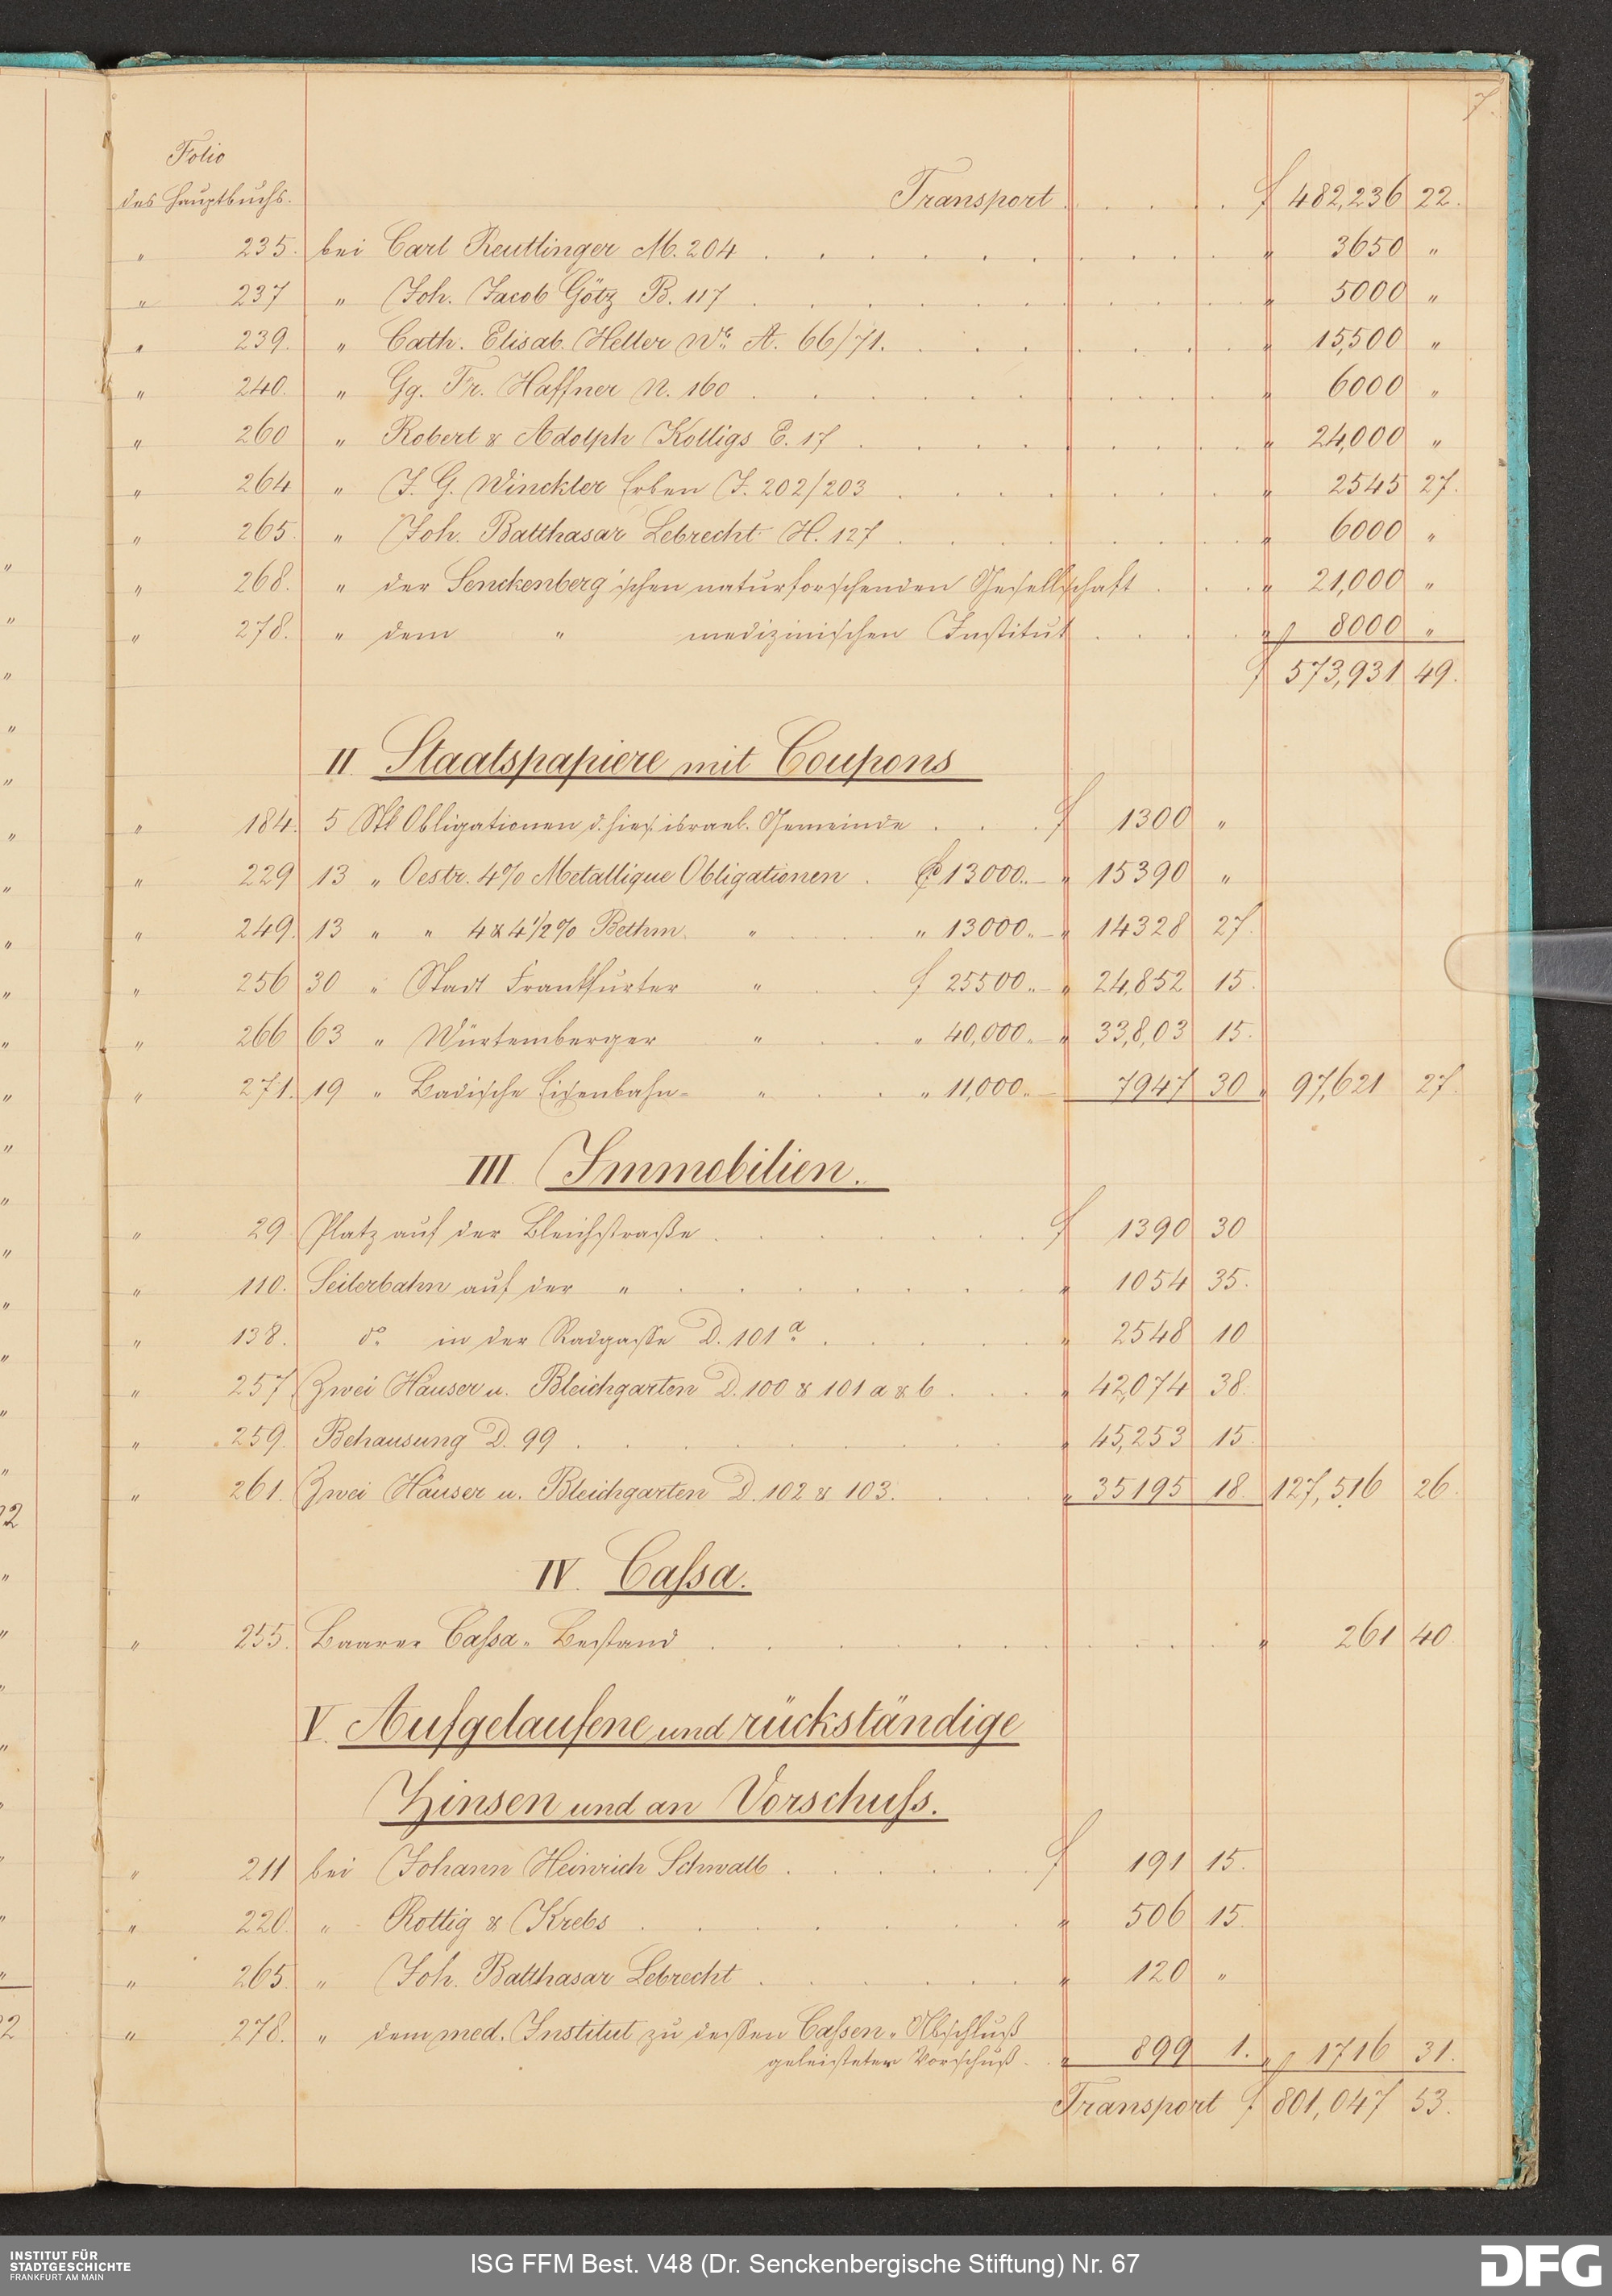 7.
Folio
des Hauptbuchs.
Transport . . . . f 482,236 22.
" 235. bei Carl Reuttinger M. 204 . . . " 3650 "
" 237 " Joh. Jacob Götz B. 117 . . . " 5000 "
" 239. " Cath. Elisab. Heller We. A. 66/71. . . . " 15,500 "
" 240. " Gg. Fr. Haffner N. 160 . . . " 6000 "
" 260 " Robert & Adolph Kolligs E. 17 . . . " 24,000 "
" 264 " J. G. Winckler Erben J. 202/203 . . . " 2545 27.
" 265. " Joh. Balthasar Lebrecht H. 127 . . . " 6000 "
" 268. " der Senckenberg'schen naturforschenden Gesellschaft . . . " 21,000 "
" 278. " dem " medizinischen Institut . . . " 8000 "
f 573,931 49.
II. Staatspapiere mit Coupons
" 184. 5 Stk Obligationen d. hies. israel. Gemeinde . . . f 1300 "
" 229 13 " Oestr. 4% Metallique Obligationen . 13000.– " 15390 "
" 249. 13 " " 4 & 4 1/2% Bethm. " . . " 13000.– " 14328 27.
" 256 30 " Stadt Frankfurter " . . f 25500.– " 24,852 15.
" 266 63 " Würtemberger " . . " 40,000.– " 33,803 15.
" 271. 19 " Badische Eisenbahn- " . . " 11,000.– 7947 30 " 97,621 27.
III. Immobilien.
" 29. Platz auf der Bleichstraße . . . f 1390 30
" 110. Seilerbahn auf der " . . . " 1054 35.
" 138. do. in der Radgasse D. 101 a. . . . " 2548 10
" 257 Zwei Häuser u. Bleichgarten D. 100 & 101 a & b . . . " 42,074 38.
" 259. Behausung D. 99 . . . " 45,253 15.
" 261. Zwei Häuser u. Bleichgarten D. 102 & 103. . . . " 35195 18. 127,516 26.
IV. Cassa.
" 255. Baarer Cassa-Bestand . . . " 261 40
V. Aufgelaufene und rückständige
Zinsen und an Vorschuss.
" 211 bei Johann Heinrich Schwalb . . . f 191 15.
" 220. " Rottig & Krebs . . . " 506 15.
" 265 " Joh. Balthasar Lebrecht . . . " 120 "
" 278. " dem med. Institut zu dessen Cassen-Abschluß
geleisteter Vorschuß . " 899 1. " 1716 31.
Transport f 801,047 53.
INSTITUT FÜR
STADTGESCHICHTE
FRANKFURT AM MAIN
ISG FFM Best. V48 (Dr. Senckenbergische Stiftung) Nr. 67
DFG